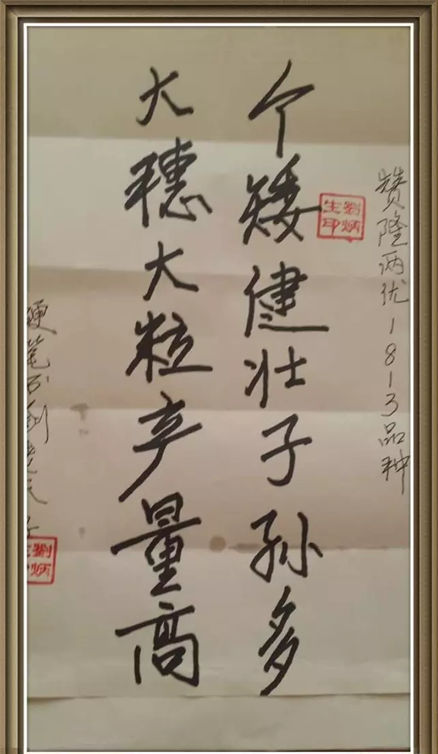 赞隆两优1813品种
个矮健壮子孙多
大穗大粒产量高
硬笔书
劉炳生印
劉炳